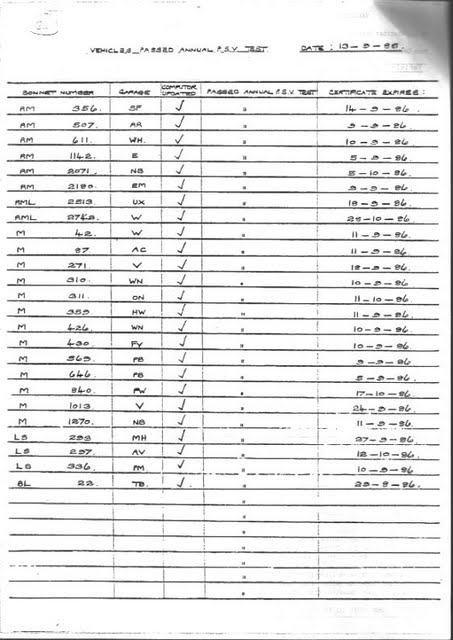 VEHICLES PASSED ANNUAL P.S.V. TEST. DATE: 13-9-85
BONNET NUMBER GARAGE COMPUTOR UPDATED PASSED ANNUAL P.S.V. TEST CERTIFICATE EXPIRES:
RM 356. SF ✓ " 14-9-86
RM 507. AR ✓ " 9-9-86
RM 611. WH. ✓ " 10-9-86
RM 1142. E ✓ " 5-9-86
RM 2071. NB ✓ " 5-10-86
RM 2180. BM ✓ " 9-9-86
RML 2513 UX ✓ " 18-9-86
RML 2742. W ✓ " 25-10-86
M 42. W ✓ " 11-9-86
M 87 AC ✓ " 11-9-86
M 271. V ✓ " 18-9-86
M 310. WN ✓ " 10-9-86
M 311. ON ✓ " 11-10-86
M 359 HW ✓ " 11-9-86
M 426. WN ✓ " 10-9-86
M 430. FY ✓ " 10-9-86
M 569. PB ✓ " 9-9-86
M 646. PB ✓ " 5-9-86
M 840. FW ✓ " 17-10-86
M 1013. V ✓ " 24-9-86
M 1270. NB ✓ " 11-9-86
LS 293 MH ✓ " 27-9-86
LS 297. AV ✓ " 12-10-86
LS 336. PM ✓ " 10-9-86
BL 22. TB. ✓ " 29-8-86.
"
"
"
"
"
"